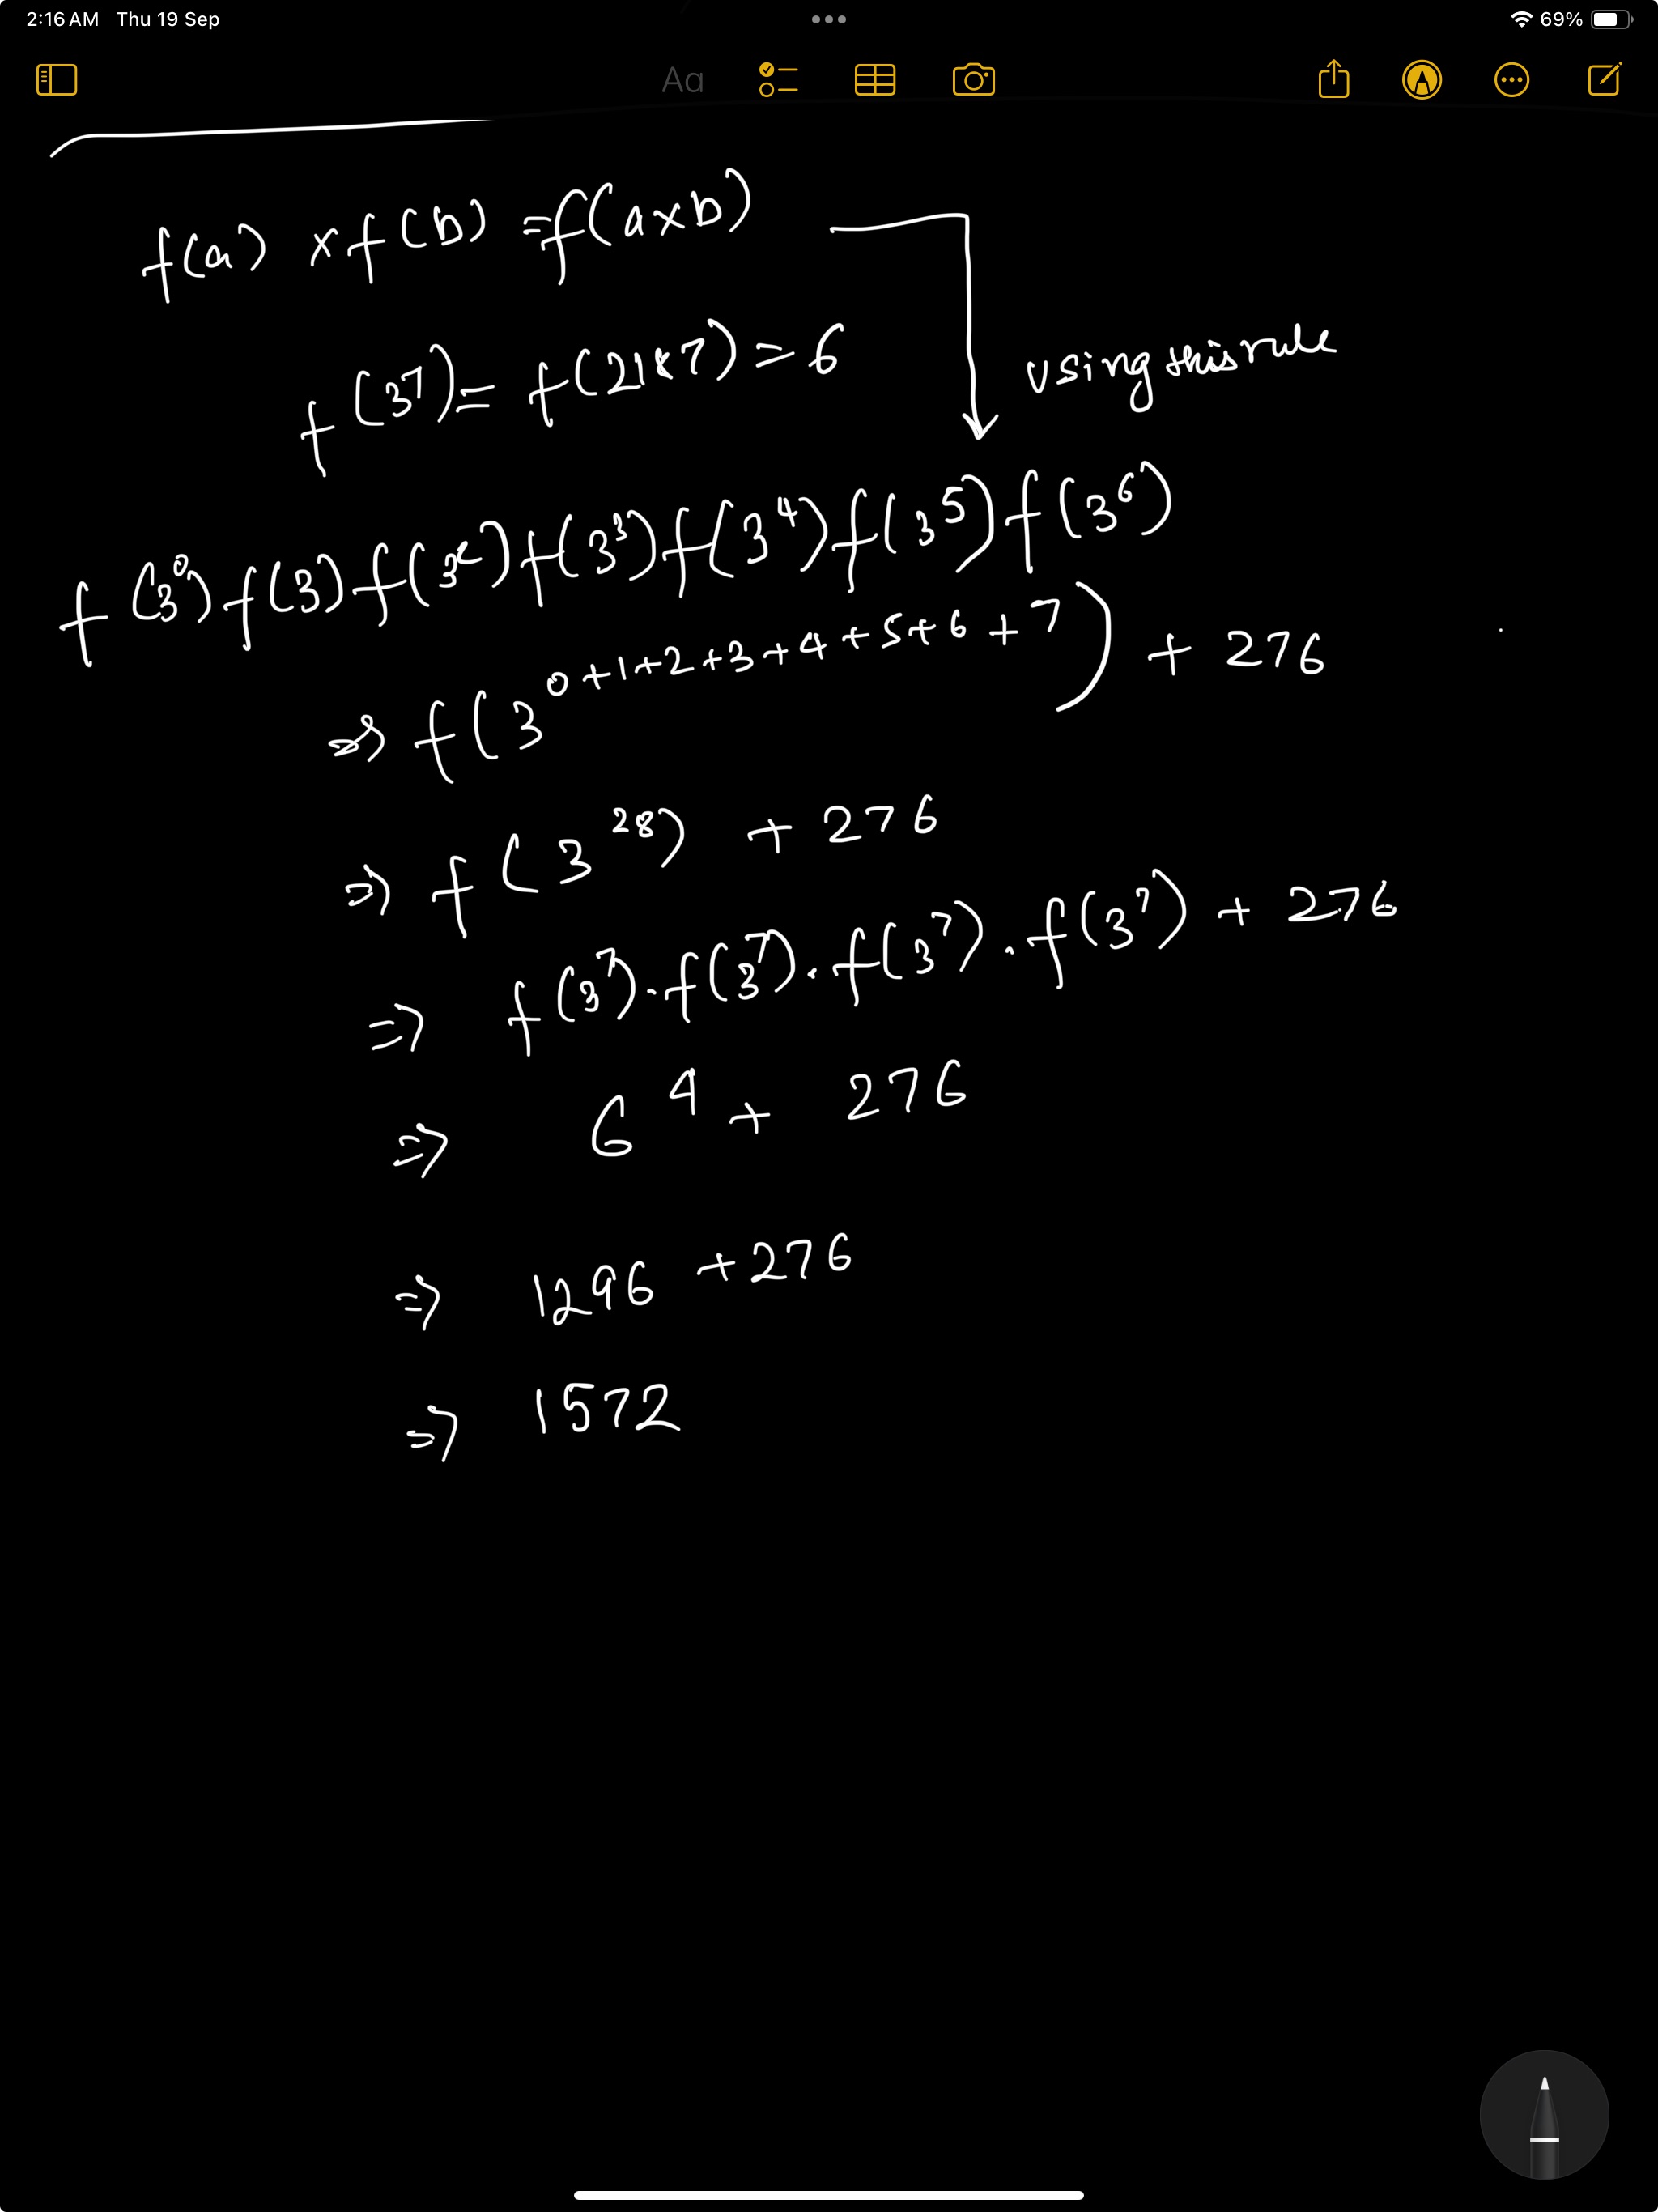 2:16 AM Thu 19 Sep 69%
Aa
f(a) × f(b) = f(a×b)
using this rule
f(3⁷) = f(2187) = 6
f(3⁰) f(3) f(3²) f(3³) f(3⁴) f(3⁵) f(3⁶)
⇒ f(3⁰⁺¹⁺²⁺³⁺⁴⁺⁵⁺⁶⁺⁷) + 276
⇒ f(3²⁸) + 276
⇒ f(3⁷)·f(3⁷)·f(3⁷)·f(3⁷) + 276
⇒ 6⁴ + 276
⇒ 1296 + 276
⇒ 1572